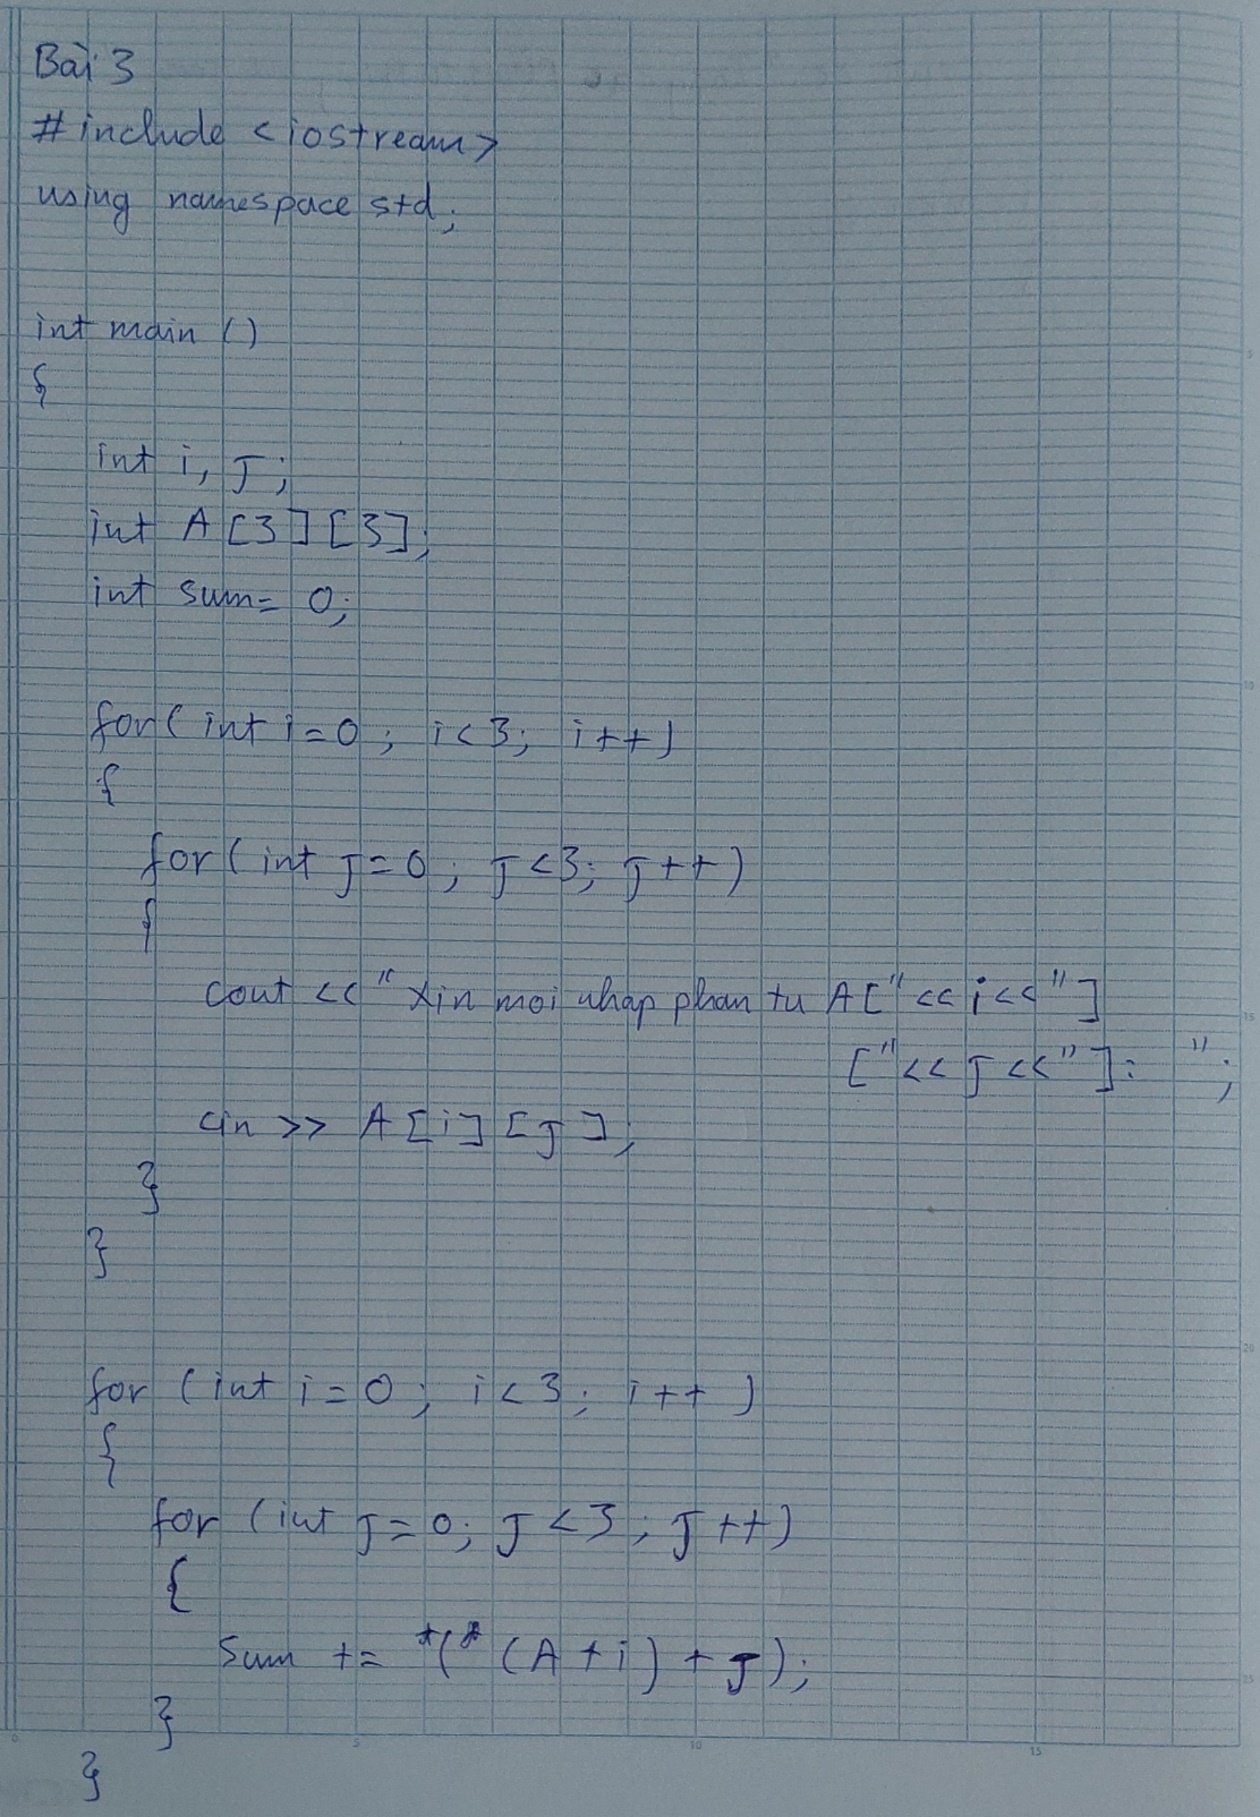 Bài 3
#include <iostream>
using namespace std;
int main ()
{
int i, j;
int A[3][3];
int sum= 0;
for( int i=0; i<3; i++)
{
for( int j=0; j<3; j++)
{
cout <<"Xin moi nhap phan tu A["<<i<<"]
["<<j<<"]: ";
cin >> A[i][j];
}
}
for (int i=0; i<3; i++)
{
for (int j=0; j<3; j++)
{
Sum += *(*(A+i)+j);
}
}
0 5 10 15
5
10
15
20
25